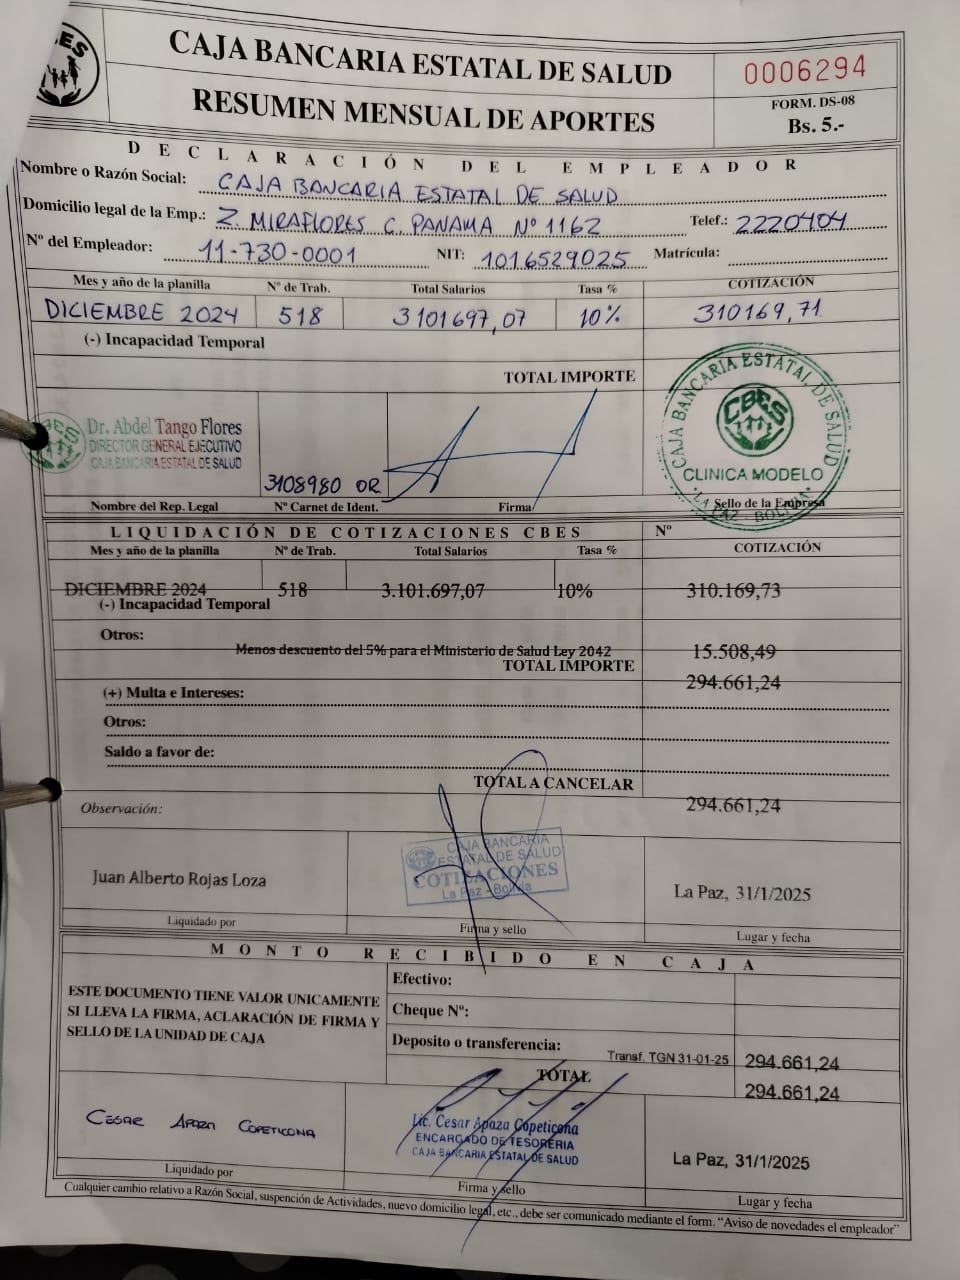 CBES
CAJA BANCARIA ESTATAL DE SALUD
0006294
RESUMEN MENSUAL DE APORTES
FORM. DS-08
Bs. 5.-
DECLARACIÓN DEL EMPLEADOR
Nombre o Razón Social: CAJA BANCARIA ESTATAL DE SALUD
Domicilio legal de la Emp.: Z. MIRAFLORES C. PANAMA Nº 1162 Telef.: 2220404
Nº del Empleador: 11-730-0001 NIT: 1016529025 Matrícula:
Mes y año de la planilla Nº de Trab. Total Salarios Tasa % COTIZACIÓN
DICIEMBRE 2024 518 3101697,07 10% 310169,71
(-) Incapacidad Temporal
TOTAL IMPORTE
Dr. Abdel Tango Flores
DIRECTOR GENERAL EJECUTIVO
CAJA BANCARIA ESTATAL DE SALUD
3108980 OR
CAJA BANCARIA ESTATAL DE SALUD
CBES
CLINICA MODELO
LA PAZ - BOLIVIA
Nombre del Rep. Legal Nº Carnet de Ident. Firma Sello de la Empresa
LIQUIDACIÓN DE COTIZACIONES CBES Nº
Mes y año de la planilla Nº de Trab. Total Salarios Tasa % COTIZACIÓN
DICIEMBRE 2024 518 3.101.697,07 10% 310.169,73
(-) Incapacidad Temporal
Otros:
Menos descuento del 5% para el Ministerio de Salud Ley 2042 15.508,49
TOTAL IMPORTE 294.661,24
(+) Multa e Intereses:
Otros:
Saldo a favor de:
TOTAL A CANCELAR 294.661,24
Observación:
CAJA BANCARIA
ESTATAL DE SALUD
COTIZACIONES
La Paz - Bolivia
Juan Alberto Rojas Loza La Paz, 31/1/2025
Liquidado por Firma y sello Lugar y fecha
MONTO RECIBIDO EN CAJA
ESTE DOCUMENTO TIENE VALOR UNICAMENTE
SI LLEVA LA FIRMA, ACLARACIÓN DE FIRMA Y
SELLO DE LA UNIDAD DE CAJA
Efectivo:
Cheque Nº:
Deposito o transferencia: Transf. TGN 31-01-25 294.661,24
TOTAL 294.661,24
CESAR APAZA COPETICONA
Lic. Cesar Apaza Copeticona
ENCARGADO DE TESORERIA
CAJA BANCARIA ESTATAL DE SALUD
La Paz, 31/1/2025
Liquidado por Firma y sello Lugar y fecha
Cualquier cambio relativo a Razón Social, suspención de Actividades, nuevo domicilio legal, etc., debe ser comunicado mediante el form. "Aviso de novedades el empleador"